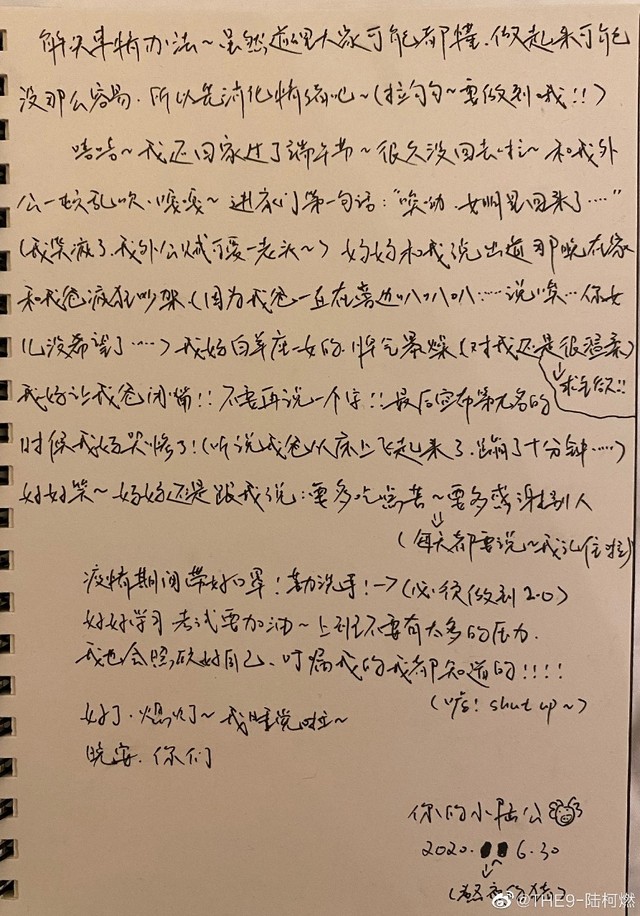 解决事情办法～虽然道理大家可能都懂.做起来可能
没那么容易.所以先消化情绪吧～(拉勾勾～要做到哦!!)
嘻嘻～我还回家过了端午节～很久没回去啦～和我外
公一顿乱吹.嘎嘎～进家门第一句话:"唉哟.女明星回来了……"
(我笑疯了.我外公贼可爱一老头～)妈妈和我说出道那晚在家
和我爸疯狂吵架(因为我爸一直在旁边叭叭叭……说唉…你女
儿没希望了……)我妈白羊座一女的.脾气暴燥(对我还是很温柔)
→求生欲!!
我妈让我爸闭嘴!!不要再说一个字!!最后宣布第九名的
时候我妈哭惨了!(听说我爸从床上飞起来了.蹦了十分钟……)
好好笑～妈妈还是跟我说:要多吃点苦～要多感谢别人
(每天都要说～我记住啦)
疫情期间带好口罩!勤洗手!→(必须做到2.0)
好好学习 考试要加油～上班不要有太多的压力.
我也会照顾好自己.叮嘱我的我都知道的!!!!
(嘘! shut up～)
好了.熄灯～我睡觉啦～
晚安.你们
你的小陆公
2020. 6.30
@THE9-陆柯燃